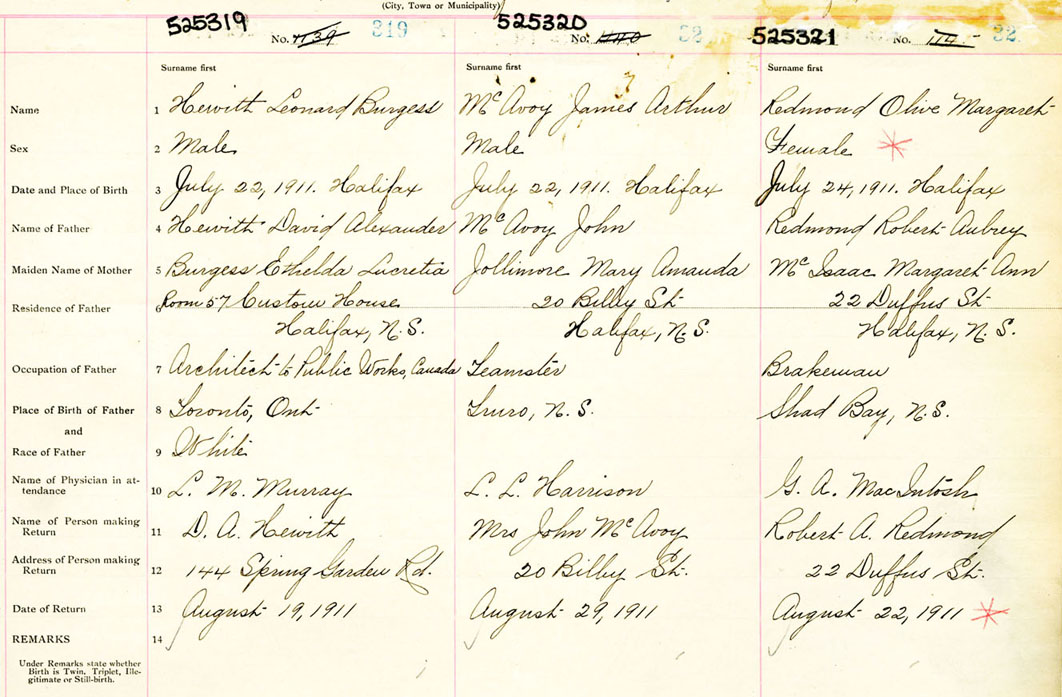 (City, Town or Municipality)
525319 525320 525321
No. 1139 319 No. 1140 32 No. 32
Surname first Surname first Surname first
Name 1 Hewitt Leonard Burgess McAvoy James Arthur Redmond Olive Margaret
Sex 2 Male Male Female
Date and Place of Birth 3 July 22, 1911. Halifax July 22, 1911. Halifax July 24, 1911. Halifax
Name of Father 4 Hewitt David Alexander McAvoy John Redmond Robert Aubrey
Maiden Name of Mother 5 Burgess Ethelda Lucretia Jollimore Mary Amanda McIsaac Margaret Ann
Residence of Father 6 Room 57 Custom House 20 Bilby St 22 Duffus St
Halifax, N.S. Halifax, N.S. Halifax, N.S.
Occupation of Father 7 Architect to Public Works, Canada Teamster Brakeman
Place of Birth of Father 8 Toronto, Ont Truro, N.S. Shad Bay, N.S.
and
Race of Father 9 White
Name of Physician in at-
tendance 10 L. M. Murray L. L. Harrison G. A. MacIntosh
Name of Person making
Return 11 D. A. Hewitt Mrs John McAvoy Robert A. Redmond
Address of Person making
Return 12 144 Spring Garden Rd. 20 Bilby St. 22 Duffus St.
Date of Return 13 August 19, 1911 August 29, 1911 August 22, 1911
REMARKS 14
Under Remarks state whether
Birth is Twin, Triplet, Ille-
gitimate or Still-birth.